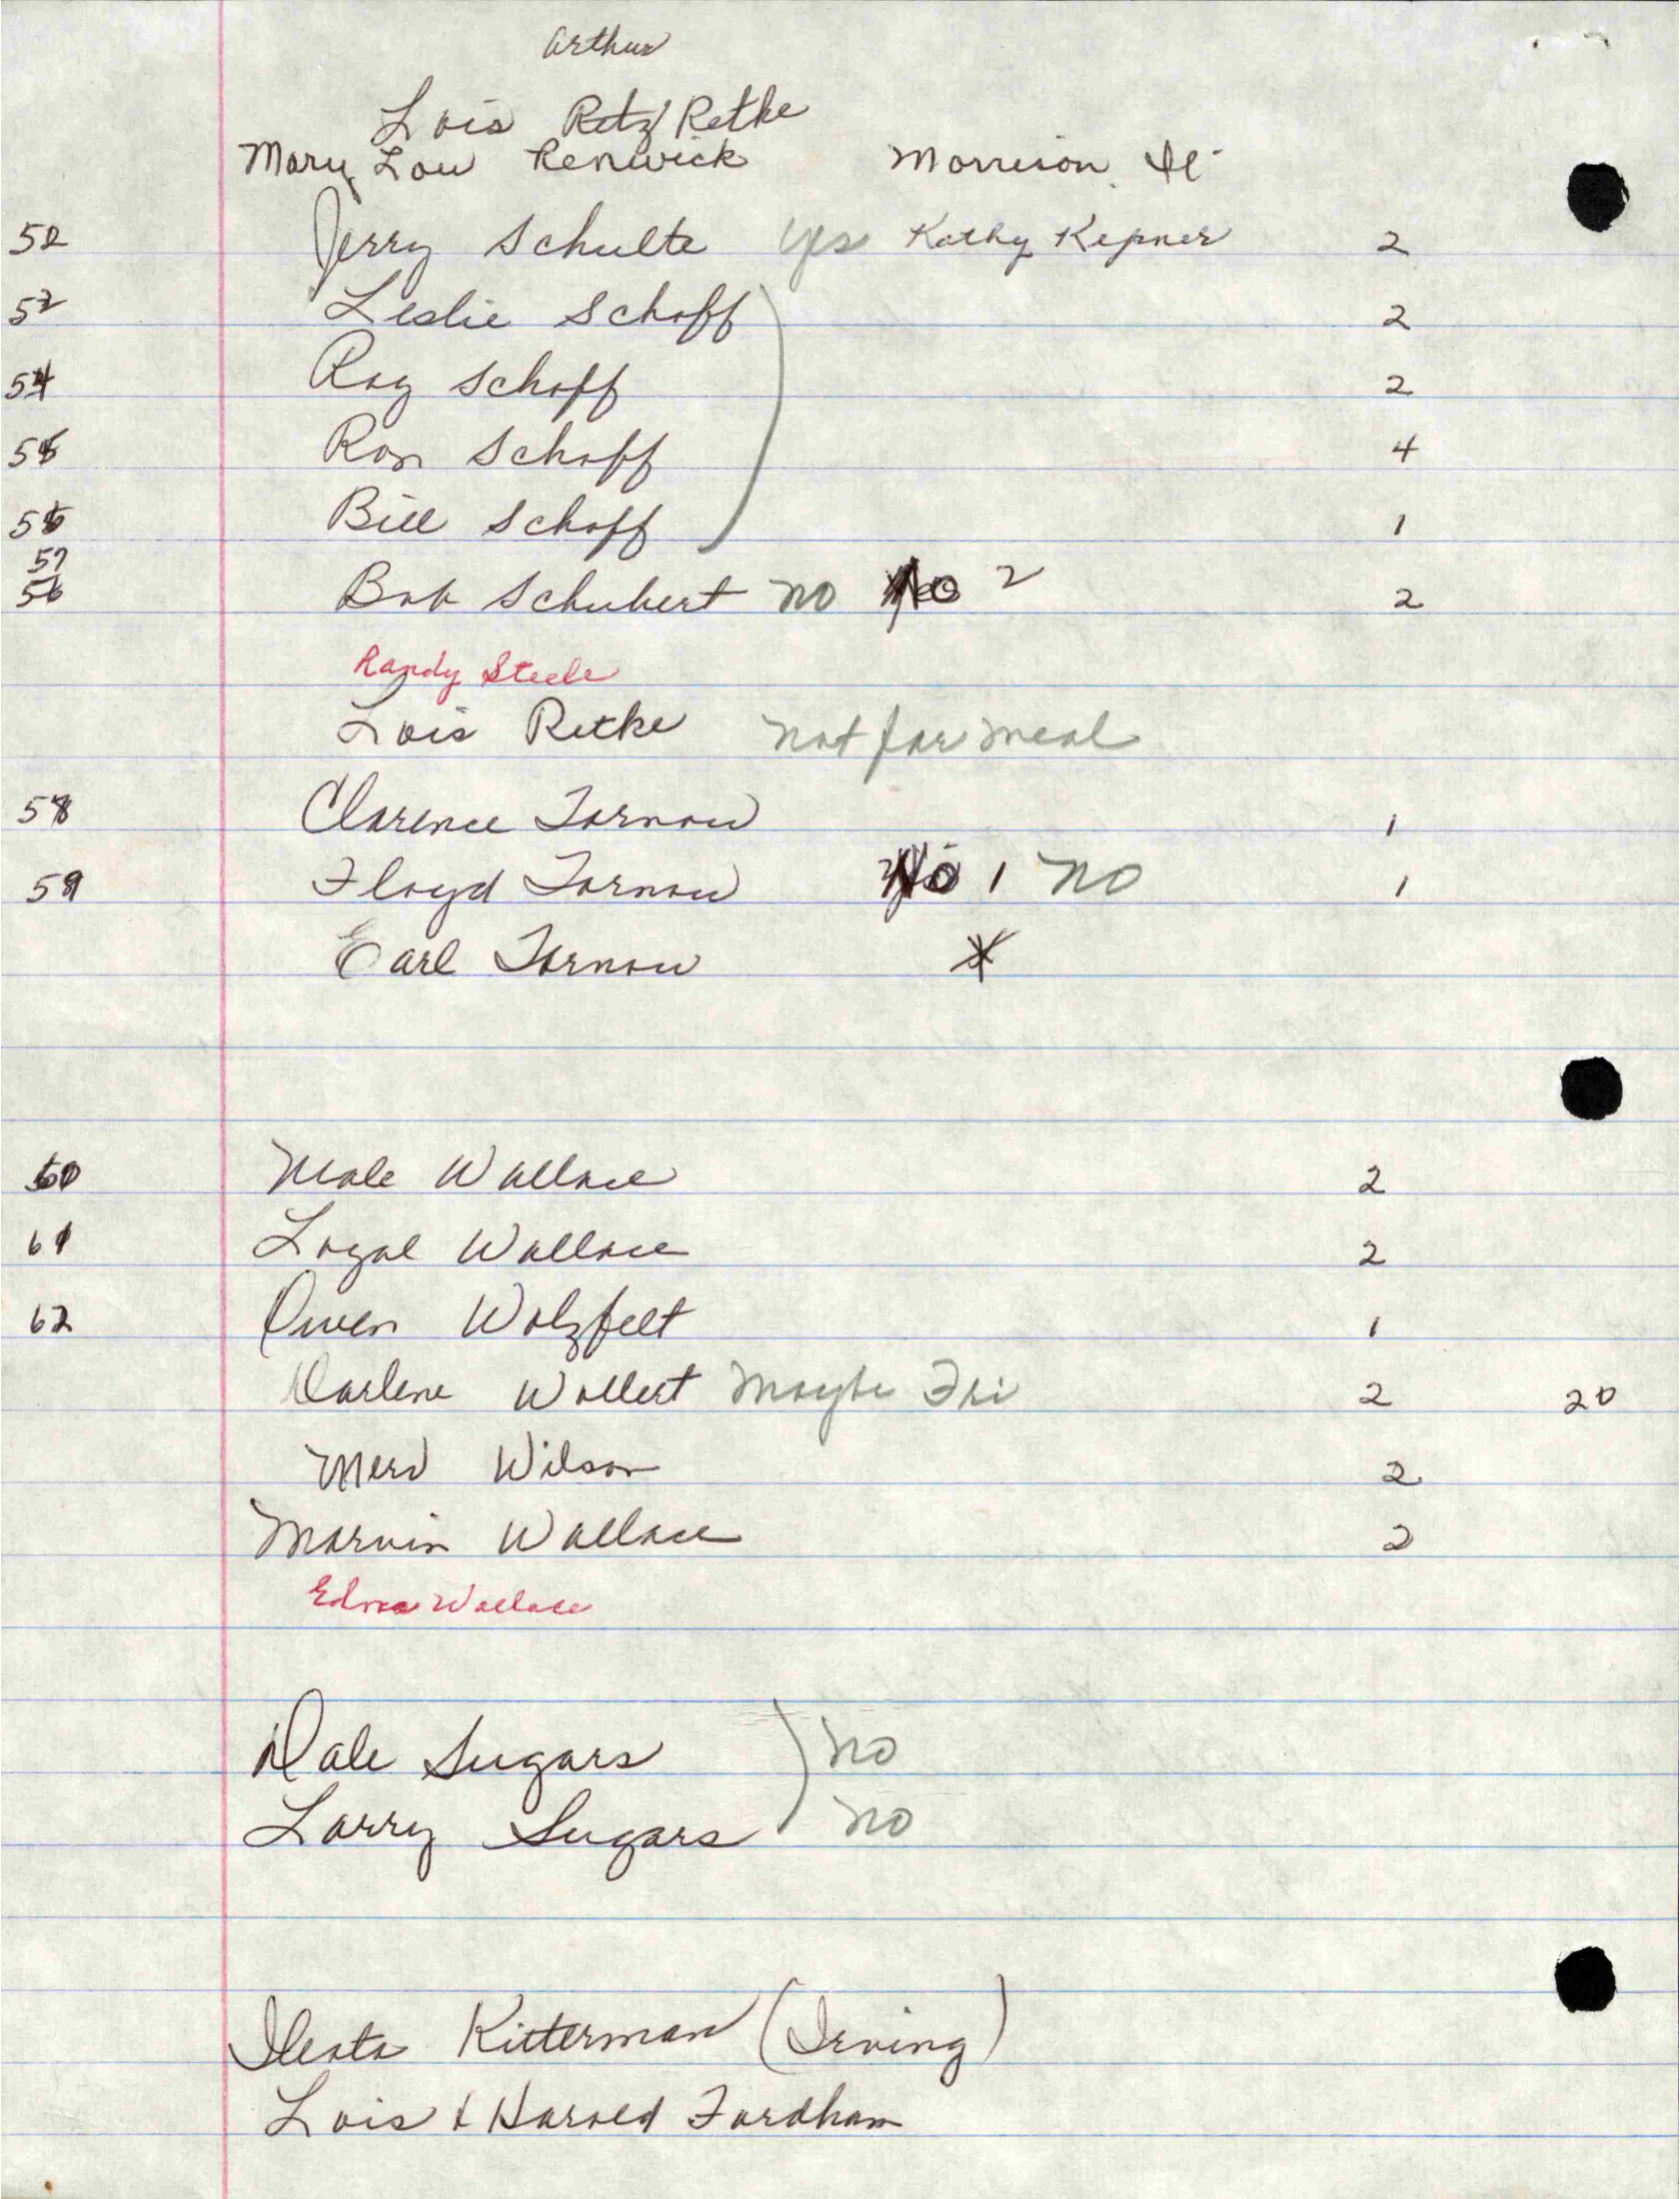 Arthur
Lois Retz Retke
Mary Lou Renwick Morrison, Il
52 Jerry Schulte yes Kathy Kepner 2
53 Leslie Schoff 2
54 Roy Schoff 2
55 Ron Schoff 4
56 Bill Schoff 1
57
56 Bob Schubert no No 2 2
Randy Steele
Lois Retke not for meal
58 Clarence Tornow 1
59 Floyd Tornow No 1 no 1
Earl Tornow
60 Merle Wallace 2
61 Loyal Wallace 2
62 Owen Wolzfelt 1
Darlene Wollert Maybe Fri 2 20
Merv Wilson 2
Marvin Wallace 2
Edna Wallace
Dale Sugars no
Larry Sugars no
Kitterman (Irving)
Lois & Harold Fordham